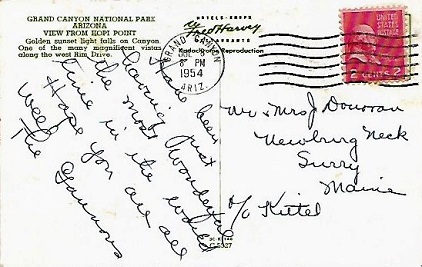 GRAND CANYON NATIONAL PARK
ARIZONA
VIEW FROM HOPI POINT
Golden sunset light falls on Canyon.
One of the many magnificent vistas
along the west Rim Drive.
HOTELS-SHOPS
Fred Harvey
RESTAURANTS
Kodachrome Reproduction
GRAND CANYON
PM
1954
ARIZ.
UNITED STATES
POSTAGE
2 CENTS 2
Have been
having just
the most wonderful
time in the world
Hope you are all
well
The Gannons
Mr & Mrs J Donovan
Newburg Neck
Surry
Maine
c/o Kittel